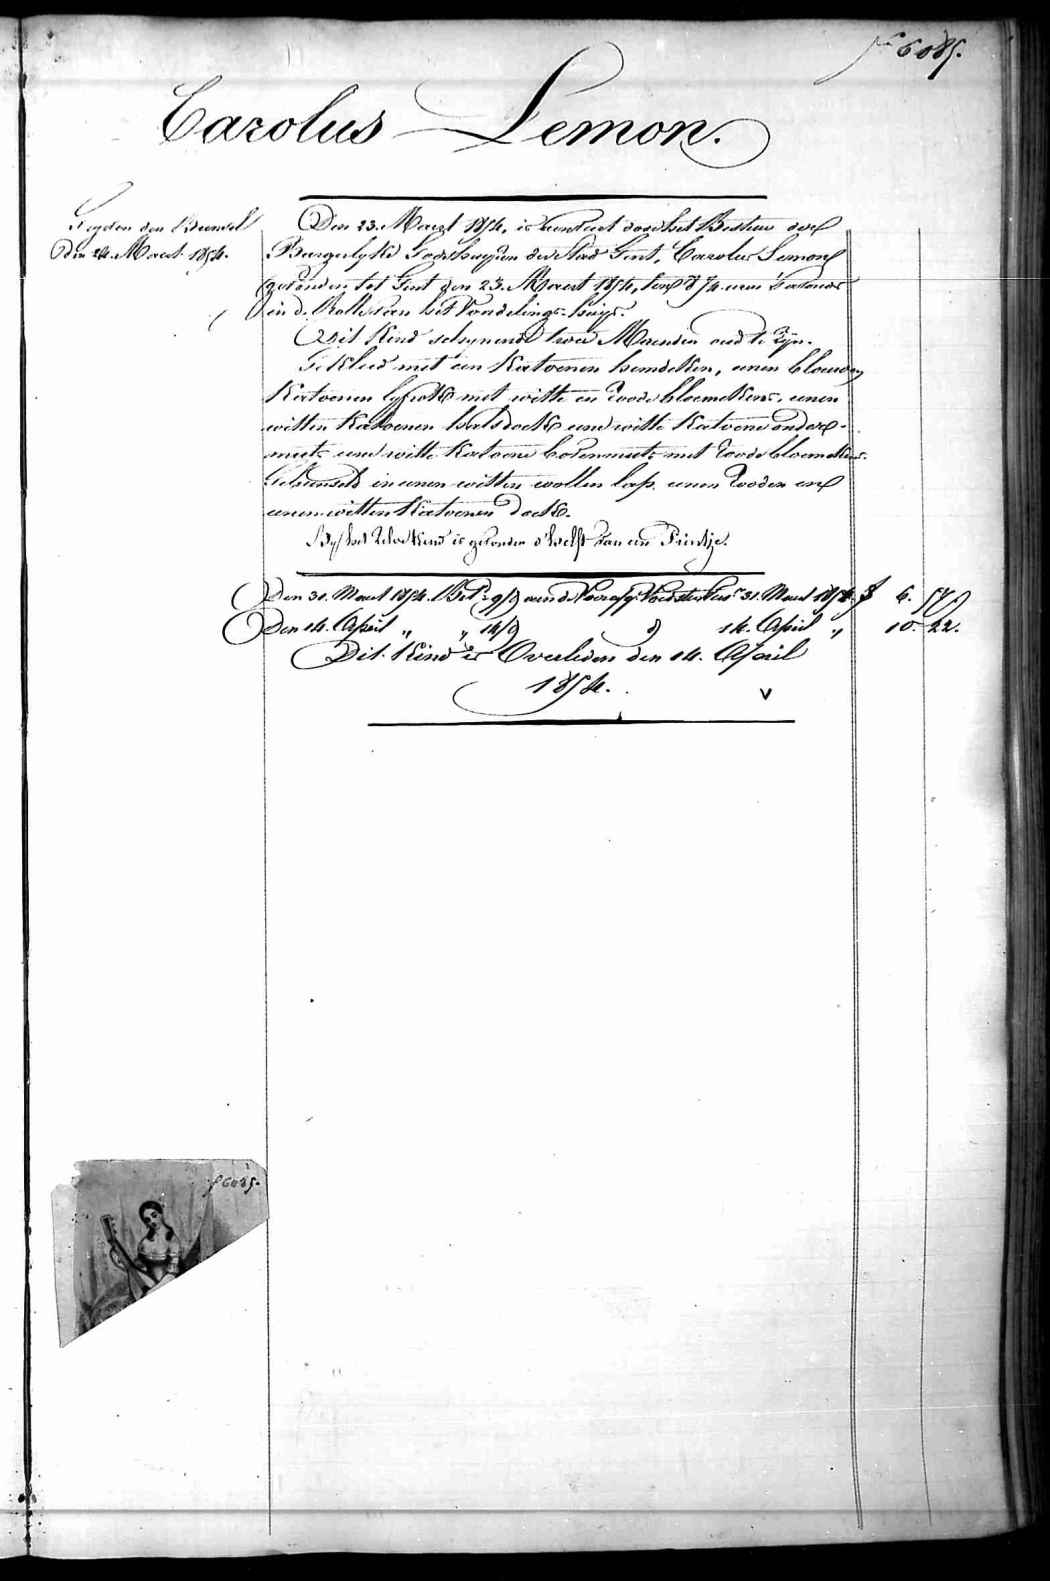 f° 6085.
Carolus Lemon.
den 24. Maert 1854.
Den 23. Maert 1854, is aenveert door het Bestier der
Burgerlyke Godshuyzen der Stad Gent, Carolus Lemon
gevonden tot Gent den 23. Maert 1854, ten 8 3/4 uren 's avonds
in de Rolle van het Vondelings-huys.
Dit Kind schynende twee Maenden oud te zyn.
Gekleed met een Katoenen hemdeken, eenen blauwen
Katoenen lyfrok met witte en roode bloemekens, eenen
witten Katoenen halsdoek eene witte Katoene onder-
muts eene witte Katoene bovenmuts met roode bloemekens
in eenen witten wollen lap, eenen rooden en
eenen witten Katoenen doek.
By het zelve Kind is gevonden d'helft van een Printje.
Den 31. Maert 1854. Bet: 9/ aen de Voorsz. Voedster tot 31. Maert 1854. f 6. 57
Den 14. April „ „ 14/ d 14. April „ 10. 22.
Dit Kind is Overleden den 14. April
1854.
f° 6085.